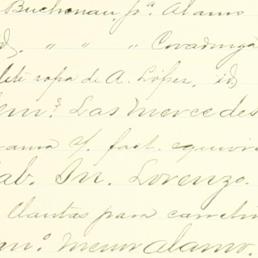 Buchanan, pª Alamo
id, " " " Covadonga
flete ropa de A. López, id
Las Mercedes
fact. equivo
ab. Sn. Lorenzo.
llantas para carreti
Alamo.